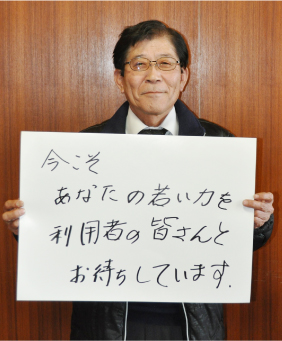 今こそ
あなたの若い力を
利用者の皆さんと
お待ちしています.